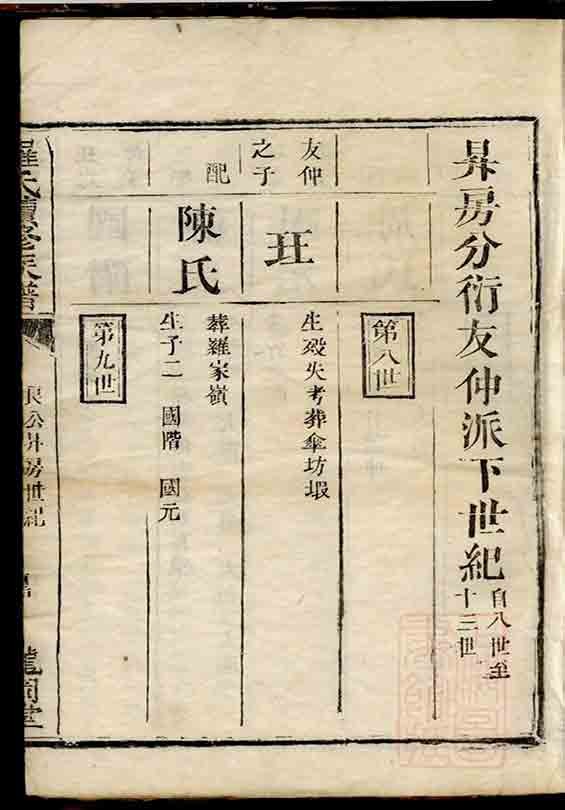 昇房分衍友仲派下世紀自八世至十三世
第八世
友仲之子
玨
生歿失考葬傘坊塅
配
陳氏
葬羅家嶺
生子二 國階 國元
第九世
羅氏續修族譜
良公昇房世紀